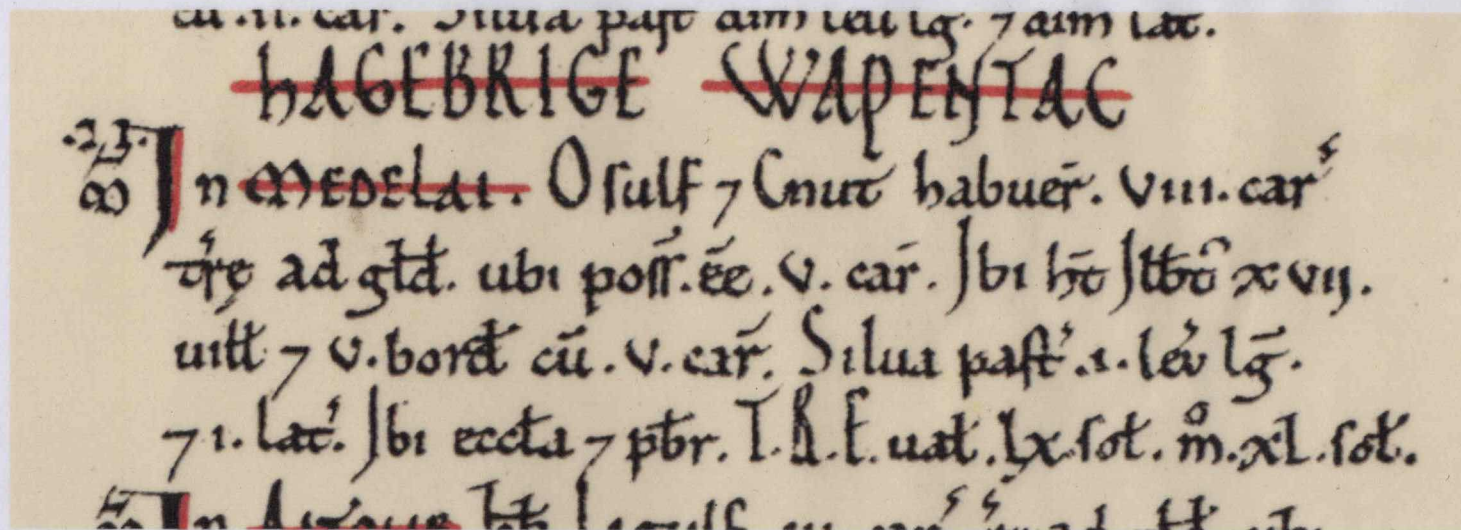 cū .II. car̄. Silua past̄ dim̄ leū lḡ. ⁊ dim̄ lat̄.
hAGEBRIGE WAPENTAC
Jn MEDELAI. Osulf ⁊ Cnut habuer̄. VIII. car̄
tr̄ę ad gld̄. ubi poss̄. ēē. V. car̄. Jbi ht̄ Jlbt̄ XVIJ.
uill̄ ⁊ V. bord̄ cū. V. car̄. Silua past̄. I. leū lḡ.
⁊ I. lat̄. Jbi eccl̄a ⁊ pb̄r. T. R. E. ual̄. LX. sol̄. m̊. XL. sol̄.
Jn